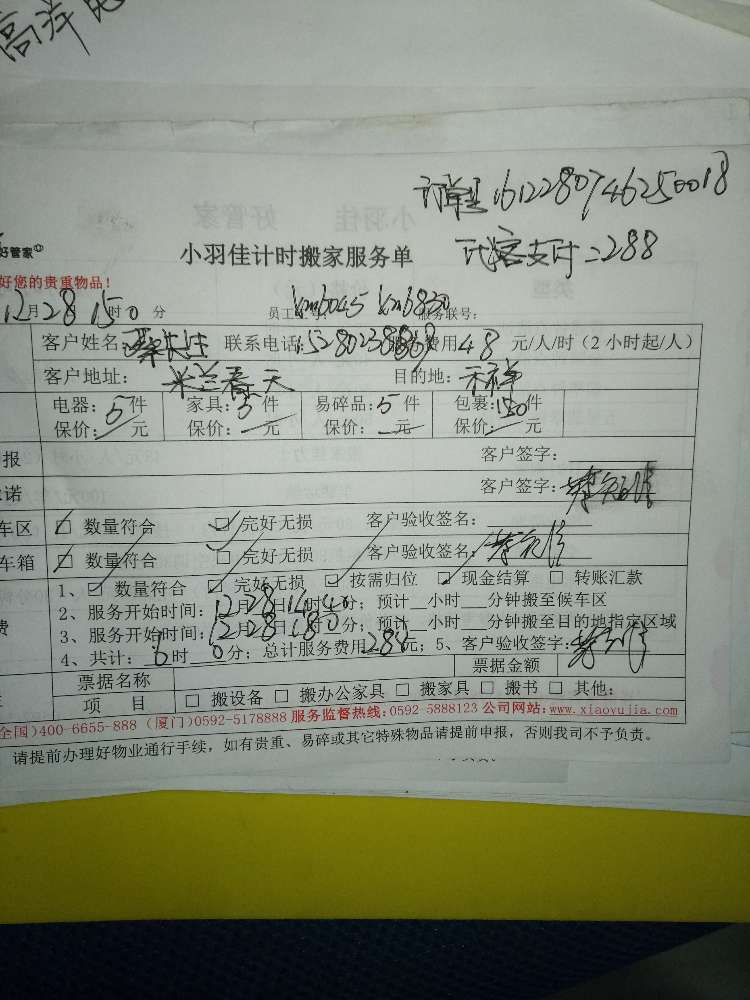 高洋
订单号1612280746250018
好管家
小羽佳计时搬家服务单
代客支付=288
好您的贵重物品!
12月28日15时0分 员工 xm6045 xm6830 服务联号:
客户姓名: 联系电话:15280238869 费用48元/人/时(2小时起/人)
客户地址: 米兰春天 目的地: 禾祥
电器:5件 家具:5件 易碎品:5件 包裹:150件
保价: 元 保价: 元 保价: 元 保价: 元
报 客户签字:
诺 客户签字:
车区 □ 数量符合 □ 完好无损 客户验收签名:
车箱 □ 数量符合 □ 完好无损 客户验收签名:
1、☑ 数量符合 ☑ 完好无损 ☑ 按需归位 ☑ 现金结算 □ 转账汇款
2、服务开始时间:12月28日 时40分; 预计__小时___分钟搬至候车区
费 3、服务开始时间:12月28日18时0分; 预计__小时___分钟搬至目的地指定区域
4、共计:6时0分; 总计服务费用288元; 5、客户验收签字:
票据名称 票据金额
项 目 □ 搬设备 □ 搬办公家具 □ 搬家具 □ 搬书 □ 其他:
全国)400-6655-888 (厦门)0592-5178888 服务监督热线:0592-5888123 公司网站:www.xiaoyujia.com
请提前办理好物业通行手续,如有贵重、易碎或其它特殊物品请提前申报,否则我司不予负责。